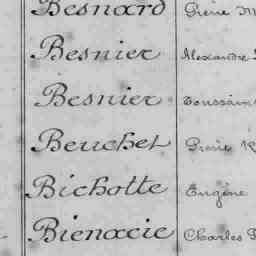 Besnard
Besnier Alexandre
Besnier Toussaint
Beuchet
Bichotte Eugène
Bienacie Charles